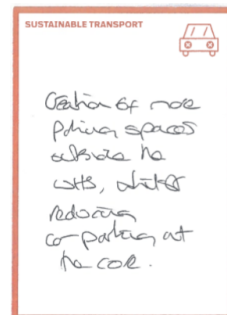 SUSTAINABLE TRANSPORT
Creation of more
parking spaces
outside the
WHS, whilst
reducing
car parking at
the core.